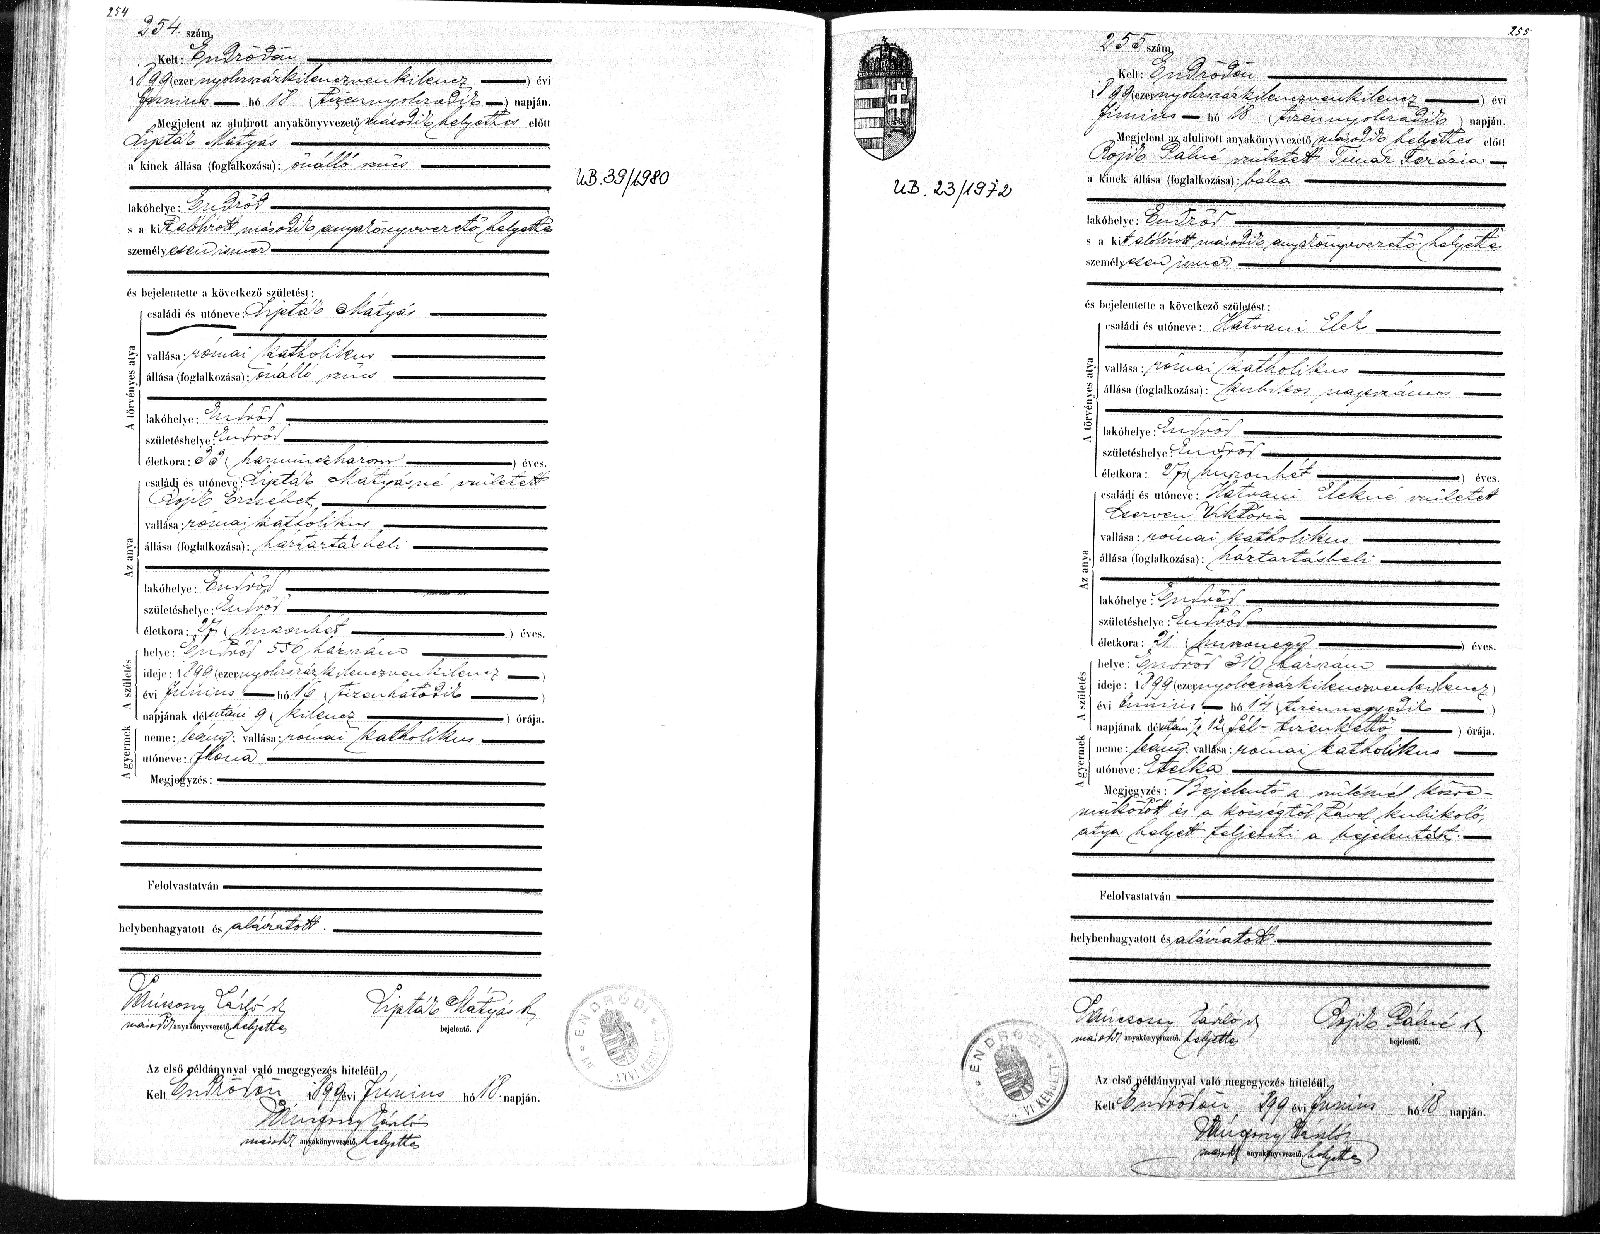 254
254. szám.
Kelt: Endrődön
1899 (ezernyolcszázkilenczvenkilencz) évi
Junius hó 18 (tizennyolczadik) napján.
Megjelent az alulirott anyakönyvvezető második helyettes előtt
Lipták Mátyás
a kinek állása (foglalkozása): önálló szűcs
lakóhelye: Endrőd
s a kit alólirott második anyakönyvvezető helyettes
személyesen ismer
és bejelentette a következő születést:
A törvényes atya
családi és utóneve: Lipták Mátyás
vallása: római katholikus
állása (foglalkozása): önálló szűcs
lakóhelye: Endrőd
születéshelye: Endrőd
életkora: 33 (harminczhárom) éves.
Az anya
családi és utóneve: Lipták Mátyásné született
Rojik Erzsébet
vallása: római katholikus
állása (foglalkozása): háztartásbeli
lakóhelye: Endrőd
születéshelye: Endrőd
életkora: 27 (huszonhét) éves.
A születés
helye: Endrőd 550 házszám
ideje: 1899 (ezernyolcszázkilenczvenkilencz)
évi Junius hó 16 (tizenhatodik)
napjának délutáni 9 (kilencz) órája.
A gyermek
neme: leány: vallása: római katholikus
utóneve: Ilona
Megjegyzés:
Felolvastatván
helybenhagyatott és aláíratott.
Károly s. k.
másod. anyakönyvvezető helyettes
Lipták Mátyás s. k.
bejelentő.
ENDRŐDI
Az első példánynyal való megegyezés hiteléül.
Kelt Endrődön 1899 évi Junius hó 18. napján.
Károly
másod. anyakönyvvezető helyettes
UB. 39/1980
255
255 szám.
Kelt: Endrődön
1899 (ezernyolcszázkilenczvenkilencz) évi
Junius hó 18 (tizennyolczadik) napján.
Megjelent az alulirott anyakönyvvezető második helyettes előtt
Rojik Pálné született Timár Terézia
a kinek állása (foglalkozása): bába
lakóhelye: Endrőd
s a kit alólirott második anyakönyvvezető helyettes
személyesen ismer
és bejelentette a következő születést:
A törvényes atya
családi és utóneve: Hatvani Elek
vallása: római katholikus
állása (foglalkozása): kubikos napszámos
lakóhelye: Endrőd
születéshelye: Endrőd
életkora: 27 (huszonhét) éves.
Az anya
családi és utóneve: Hatvani Elekné született
Czerven Viktória
vallása: római katholikus
állása (foglalkozása): háztartásbeli
lakóhelye: Endrőd
születéshelye: Endrőd
életkora: 21 (huszonegy) éves.
A születés
helye: Endrőd 310 házszám
ideje: 1899 (ezernyolcszázkilenczvenkilencz)
évi Junius hó 14 (tizennegyedik)
napjának délutáni ½ 12 (fél-tizenkettő) órája.
A gyermek
neme: leány: vallása: római katholikus
utóneve: Etelka
Megjegyzés: Bejelentő a szülésnél köze-
működött és a községtől távol kubikoló,
atya helyett teljesiti a bejelentést.
Felolvastatván
helybenhagyatott és aláíratott.
Károly s. k.
másod. anyakönyvvezető. helyettes
Rojik Pálné s. k.
bejelentő.
ENDRŐDI
Az első példánynyal való megegyezés hiteléül.
Kelt Endrődön 1899 évi Junius hó 18 napján.
Károly
másod. anyakönyvvezető. helyettes
UB. 23/1972